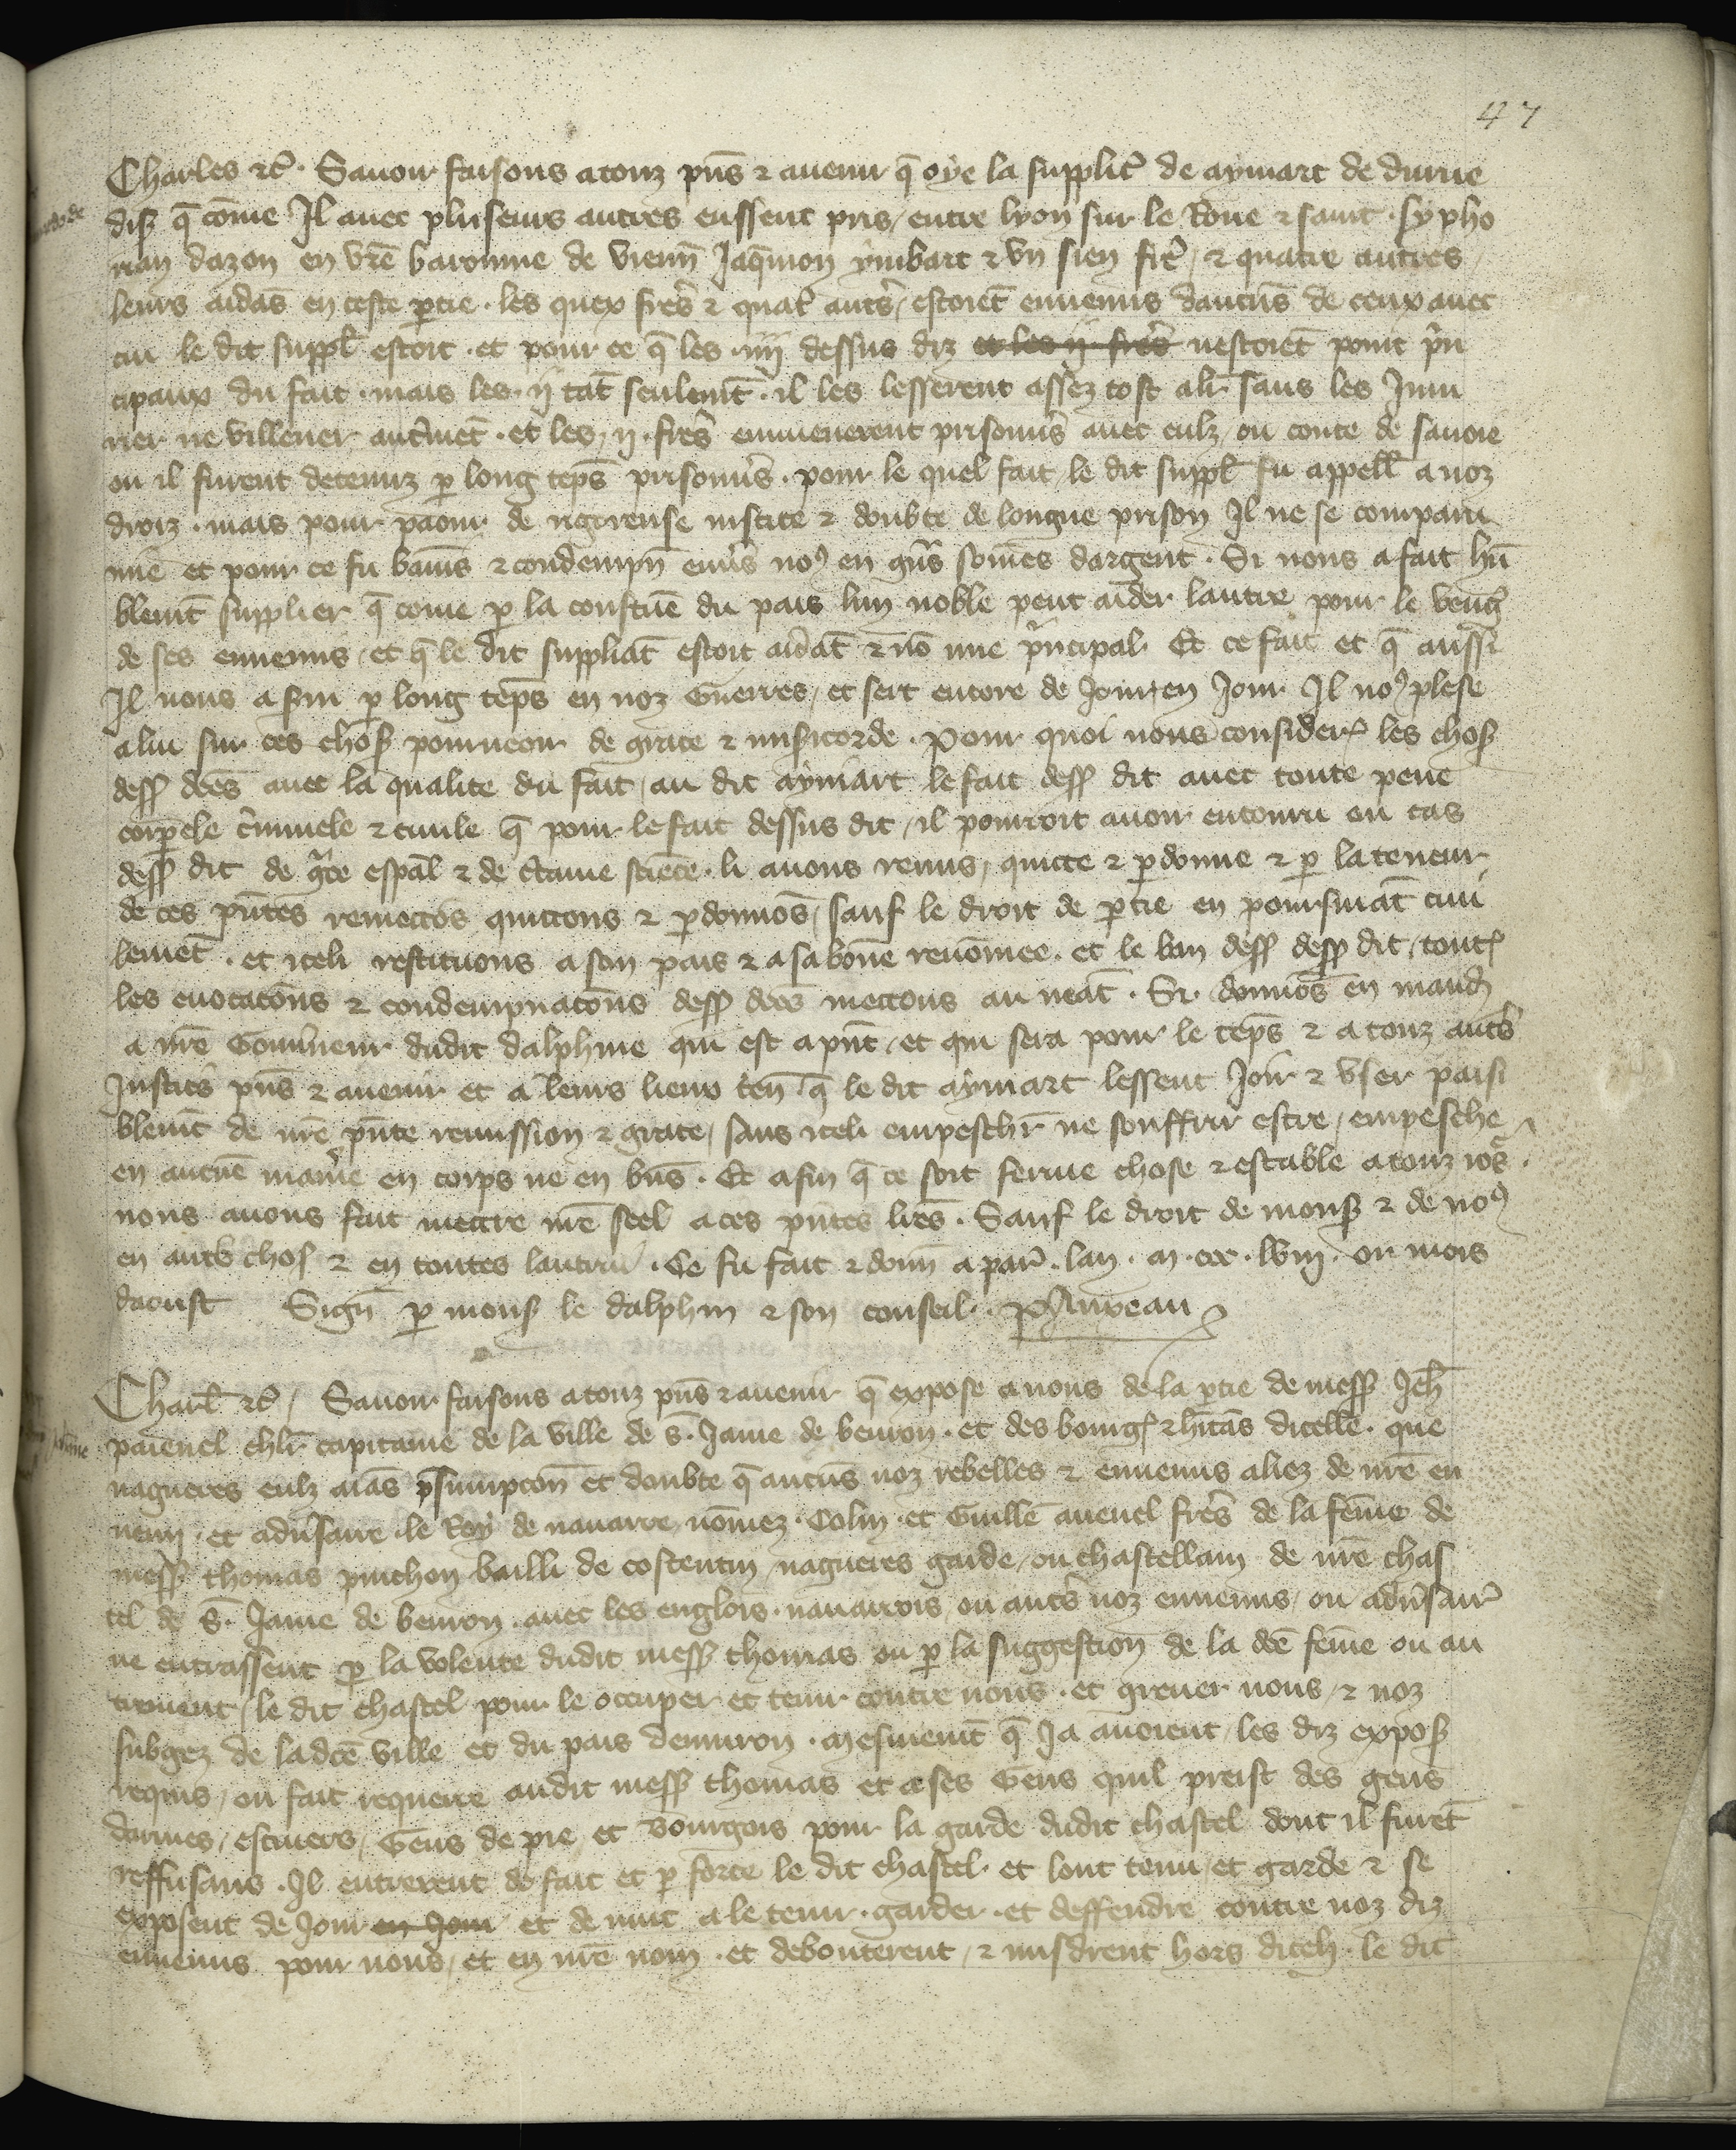 47
Charles etc̃. Sauoir faisons a touz pn̄s ⁊ auenir q̄ oye la supplic̃ de aymart de diuue
diss q̄ cōme Il auec pluseurs autres eussent pris / entre lyon sur le Rone ⁊ saint sypho
rian dazon en vr̄e baronnie de vienn̄ Jaq̄mon ymbart ⁊ vn sien fr̃e / ⁊ quatre autres
leurs aidās en ceste ptie . les quex frēs ⁊ quat̃ autr̃s / estoiēt ennemis daucūs de ceux auec
cui le dit suppl̃ estoit . et pour ce q̄ les .iiij dessus diz et les ij frēs nestoiēt point p̃n
cipaux du fait . mais les .ij tāt seulemt̄ . il les lesserent assez tost al̃r sans les Iniu
rier ne villener auc̃mēt . et les .ij. frēs emmenerent prisonñrs auec eulz ou conte de sauoie
ou il furent detenuz p long tēps prisonñrs . pour le quel fait / le dit suppl̃ fu appell̃ a noz
droiz . mais pour paour de rigoreuse iustice ⁊ doubte de longue prison Il ne se comparu
mie et pour ce fu bānis ⁊ condempn̄ enũs noꝰ en gñs sōmes dargent . Si nous a fait hū
blemt̄ supplier q̄ come p la coustūe du pais lun noble peut aider lautre pour le vēng̃
de ses ennemis / et q̄ le dit suppliāt estoit aidāt ⁊ nō mie p̃ncipal . Et ce fait et q̄ aussi
Il nous a s̃ui p long tēps en noz Guerres / et sert encore de Jour en Jour Il noꝰ plese
a lui sur ces chos̃ pourueoir de grace ⁊ mis̃icorde . Pour quoi nous consider̃ les chos̃
dess̃ dc̃es auec la qualite du fait / au dit aymart le fait dess̃ dit auec toute peine
corpele c̃minele ⁊ ciuile q̄ pour le fait dessus dit / il pourroit auoir encouru ou cas
dess̃ dit de g̃ce esp̄al ⁊ de c̃taine sciēce . li auons remis / quicte ⁊ pdonne ⁊ p la teneur
de ces pn̄tes remectōs quictons ⁊ pdonnōs / sauf le droit de ptie en poursuiāt ciui
lemēt . et iceli restituons a son pais ⁊ a sa bōne renōmee . et le ban dess̃ dess̃ dit / tout̃
les euocacōns ⁊ condempnacōns dess̃ dc̃es mectons au neāt . Si donnōs en mand̃
a nr̄e Gouũneur dudit dalphine qui est a pn̄t / et qui sera pour le tēps ⁊ a touz autr̃s
Justic̃s pn̄s ⁊ auenir et a leurs lieux ten̄ . q̄ le dit aymart lessent Joir ⁊ vser paisi
blemt̄ de nr̄e pn̄te remission ⁊ grace / sans iceli empesch̄r ne souffrir estre / empesche
en aucūe mañie en corps ne en bn̄s . Et afin q̄ ce soit ferme chose ⁊ estable a touz iōs .
nous auons fait mectre nr̄e seel a ces pn̄tes lr̄es . Sauf le droit de mons̃ ⁊ de noꝰ
en autr̃s chos̃ ⁊ en toutes lautrui . Ce fu fait ⁊ donn̄ a par̃ . lan . m . ccc . lviij . ou mois
daoust Sign̄ p mons̃ le dalphin ⁊ son conseil .
Charl̃ etc̃ / Sauoir faisons a touz pn̄s ⁊ auenir q̄ expose a nous de la ptie de mess̃ Jeh̃
paiennel chl̃r capitaine de la ville de s̄. Jame de beuron . et des bourg̃ ⁊ hitās dicelle . que
nagueres eulz aiās p̃sumpcōn et doubte q̄ aucūs noz rebelles ⁊ ennemis aliez de nr̄e en
nemi . et adũsaire le Roy de nauarre / nōmez . Colin . et Guillē auenel frēs de la fēme de
mess̃ thomas pinchon bailli de costentin / nagueres garde / ou chastellain de nr̄e chas
tel de s̄. Jame de beuron . auec les englois . nauarrois / ou autr̃s noz ennemis / ou adũsair̃
ne entrassent p la volente dudit mess̃ thomas ou p la suggestion de la dc̃e fēme ou au
trement / le dit chastel pour le occuper et tenir contre nous . et greuer nous / ⁊ noz
subgez de la dc̃e ville et du pais denuiron . mesmemt̄ q̄ Ja auoient / les diz expos̃
requis / ou fait requerre audit mess̃ thomas et a ses Gens quil preist des gens
darmes / escuiers / Gens de pie / et Bourgois pour la garde dudit chastel dont il furēt
reffusans . Il entrerent de fait et p force le dit chastel . et lont tenu / et garde ⁊ se
exposent de Jour en Jour et de nuit a le tenir . garder . et deffendre contre noz diz
ennemis pour nous / et en nr̄e nom . et debouterent / ⁊ misdrent hors diceli . le dit